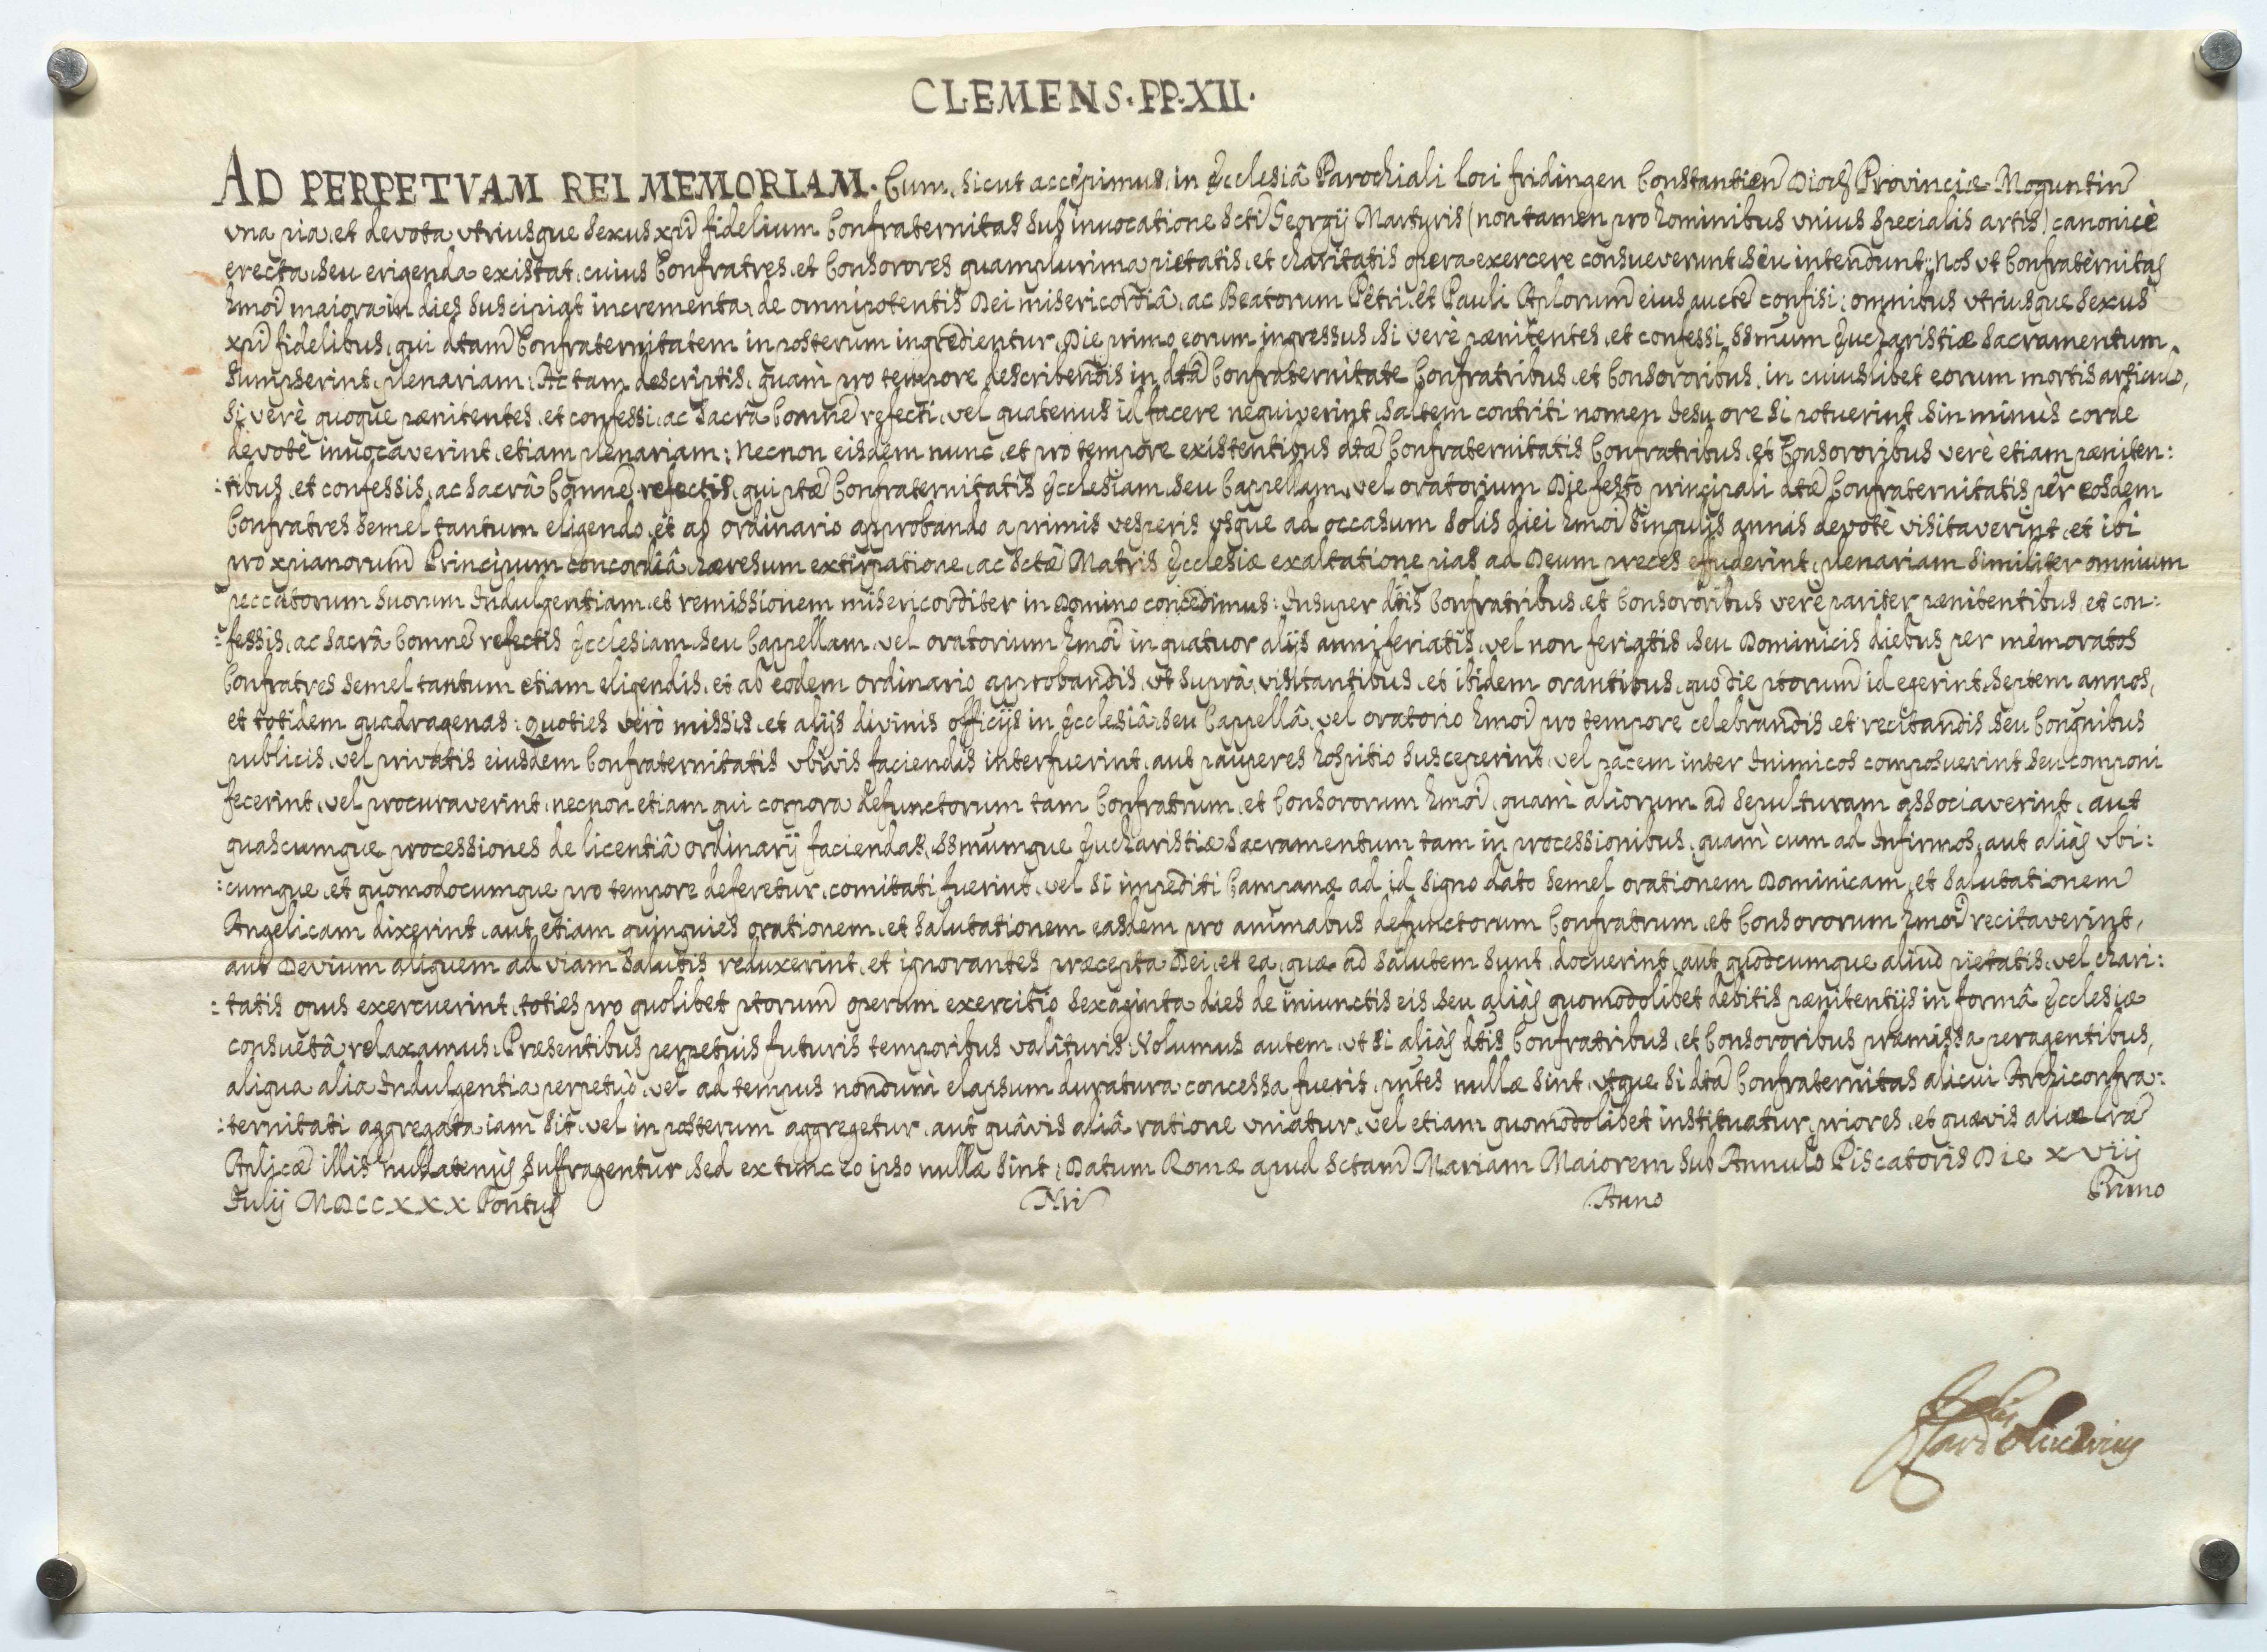 CLEMENS·PP·XII·
AD PERPETVAM REI MEMORIAM. Cum, sicut accepimus, in Ecclesiâ Parochiali loci fridingen Constantien Dioc Provinciæ Moguntin
vna pia, et devota vtriusque sexus xpi fidelium Confraternitas sub inuocatione Scti Georgij Martyris (non tamen pro hominibus vnius specialis artis) canonicè
erecta, seu erigenda existat, cuius Confratres, et Consorores quamplurima pietatis, et charitatis opera exercere consueverunt, seu intendunt; Nos vt Confraternitas
hmoi maiora in dies suscipiat incrementa, de omnipotentis Dei misericordiâ, ac Beatorum Petri, et Pauli Aplorum eius aucte confisi; omnibus vtriusque sexus
xpi fidelibus, qui dtam Confraternitatem in posterum ingredientur, Die primo eorum ingressus, si verè pænitentes, et confessi, Ssmum Eucharistiæ Sacramentum
sumpserint, plenariam; Ac tam descriptis, quam pro tempore describendis in dta Confraternitate Confratribus, et Consororibus, in cuiuslibet eorum mortis articulo,
si verè quoque pænitentes, et confessi, ac Sacrâ Comne refecti, vel quatenus id facere nequiverint, saltem contriti nomen Jesu ore si potuerint, sin minùs corde
devotè inuocaverint, etiam plenariam; Necnon eisdem nunc, et pro tempore existentibus dtæ Confraternitatis Confratribus, et Consororibus verè etiam pæniten:
:tibus, et confessis, ac Sacrâ Comne refectis, qui ptæ Confraternitatis Ecclesiam, seu Cappellam, vel oratorium Die festo principali dtæ Confraternitatis per eosdem
Confratres semel tantum eligendo, et ab ordinario approbando a primis vesperis vsque ad occasum solis diei hmoi singulis annis devotè visitaverint, et ibi
pro xpianorum Principum concordiâ, hæresum extirpatione, ac Sctæ Matris Ecclesiæ exaltatione pias ad Deum preces effuderint, plenariam similiter omnium
peccatorum suorum Indulgentiam, et remissionem misericorditer in Domino concedimus; Insuper dtis Confratribus, et Consororibus verè pariter pænitentibus, et con:
:fessis, ac Sacrâ Comne refectis Ecclesiam, seu Cappellam, vel oratorium hmoi in quatuor alijs anni feriatis, vel non feriatis, seu Dominicis diebus per memoratos
Confratres semel tantum etiam eligendis, et ab eodem ordinario approbandis, vt suprà, visitantibus, et ibidem orantibus, quo die ptorum id egerint, septem annos,
et totidem quadragenas; quoties verò missis, et alijs divinis officijs in Ecclesiâ, seu Cappellâ, vel oratorio hmoi pro tempore celebrandis, et recitandis, seu Congnibus
publicis, vel privatis eiusdem Confraternitatis vbivis faciendis interfuerint, aut pauperes hospitio susceperint, vel pacem inter Inimicos composuerint, seu componi
fecerint, vel procuraverint, necnon etiam qui corpora defunctorum tam Confratrum, et Consororum hmoi, quàm aliorum ad sepulturam associaverint, aut
quascumque processiones de licentiâ ordinarij faciendas, Ssmumque Eucharistiæ Sacramentum tam in processionibus, quàm cum ad Infirmos, aut aliàs vbi:
:cumque, et quomodocumque pro tempore deferetur, comitati fuerint, vel si impediti Campanæ ad id signo dato semel orationem Dominicam, et salutationem
Angelicam dixerint, aut etiam quinquies orationem, et salutationem easdem pro animabus defunctorum Confratrum, et Consororum hmoi recitaverint,
aut Devium aliquem ad viam salutis reduxerint, et ignorantes præcepta Dei, et ea, quæ ad salutem sunt, docuerint, aut quodcumque aliud pietatis, vel chari:
:tatis opus exercuerint, toties pro quolibet ptorum operum exercitio sexaginta dies de iniunctis eis, seu aliàs quomodolibet debitis pænitentijs in formâ Ecclesiæ
consuetâ relaxamus, Præsentibus perpetuis futuris temporibus valituris, Volumus autem, vt si aliàs dtis Confratribus, et Consororibus præmissa peragentibus,
aliqua alia Indulgentia perpetuò, vel ad tempus nondum elapsum duratura concessa fuerit, pntes nullæ sint, vtque si dta Confraternitas alicui Archiconfra:
:ternitati aggregata iam sit, vel in posterum aggregetur, aut quâvis aliâ ratione vniatur, vel etiam quomodolibet instituatur, priores, et quævis aliæ lræ
Aplicæ illis nullatenùs suffragentur, sed ex tunc eo ipso nullæ sint; Datum Romæ apud Sctam Mariam Maiorem sub Annulo Piscatoris Die xviij
Julij MDCCXXX Pontus Nri Anno Primo